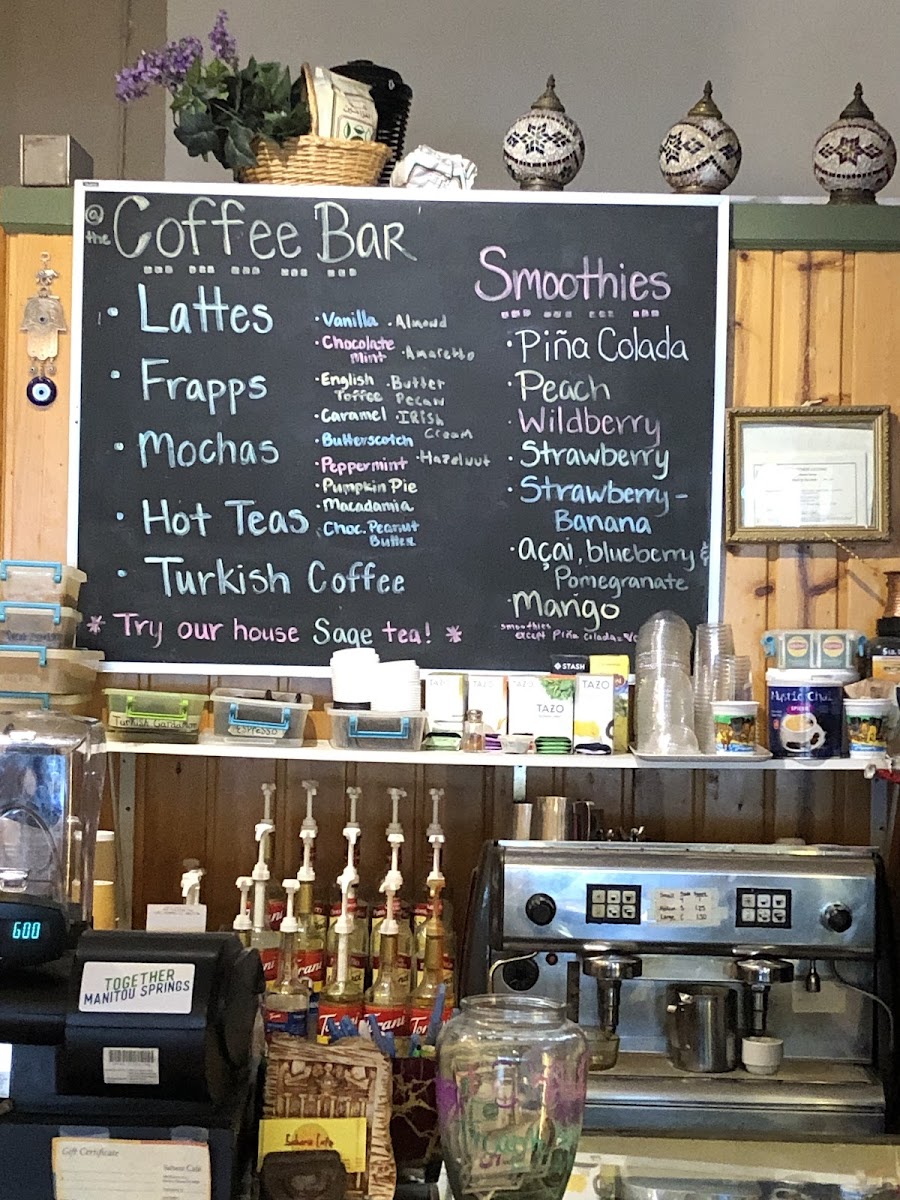 @ the Coffee Bar
· Lattes
· Frapps
· Mochas
· Hot Teas
· Turkish Coffee
* Try our house Sage tea! *
· Vanilla
· Chocolate
Mint
· English
Toffee
· Caramel
· Butterscotch
· Peppermint
· Pumpkin Pie
· Macadamia
· Choc. Peanut
Butter
· Almond
· Amaretto
· Butter
Pecan
IRISH
Cream
· Hazelnut
Smoothies
· Piña Colada
· Peach
· Wildberry
· Strawberry
· Strawberry-
Banana
· açai, blueberry &
Pomegranate
· Mango
smoothies
except Piña Colada
Espresso
STASH
TAZO
TAZO
TAZO
TAZO
TAZO
Mystic Chai
SPICED
600
TOGETHER
MANITOU SPRINGS
Torani
Torani
Torani
Gift Certificate
Sahara Café
Sahara Cafe